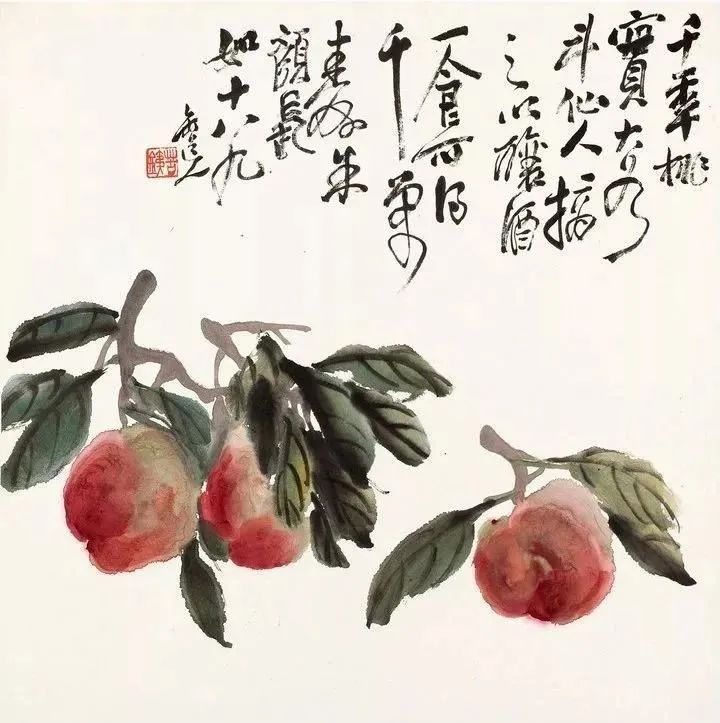 千年桃
實大於
斗仙人摘
之以釀酒
一食可得
千萬
壽朱
顏長
如十八九
缶道人
苦鐵